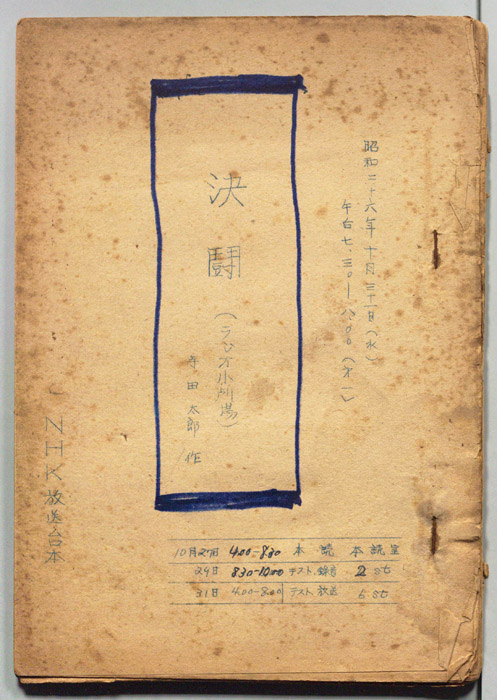 昭和二十六年十月三十一日(水)
午后七.三〇ー八.〇〇(第一)
決闘
(ラジオ小劇場)
太郎 作
NHK放送台本
10月27日 4.00-8.30 本読 本読室
29日 8.30-10.00 テスト、録音 2 st
31日 4.00-8.00 テスト、放送 6 st